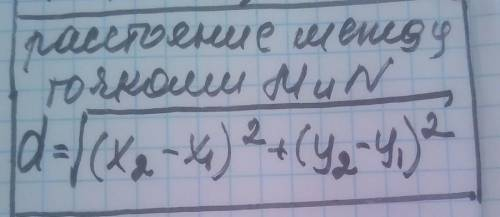 расстояние между
точками M и N
d=√(x₂-x₁)²+(y₂-y₁)²